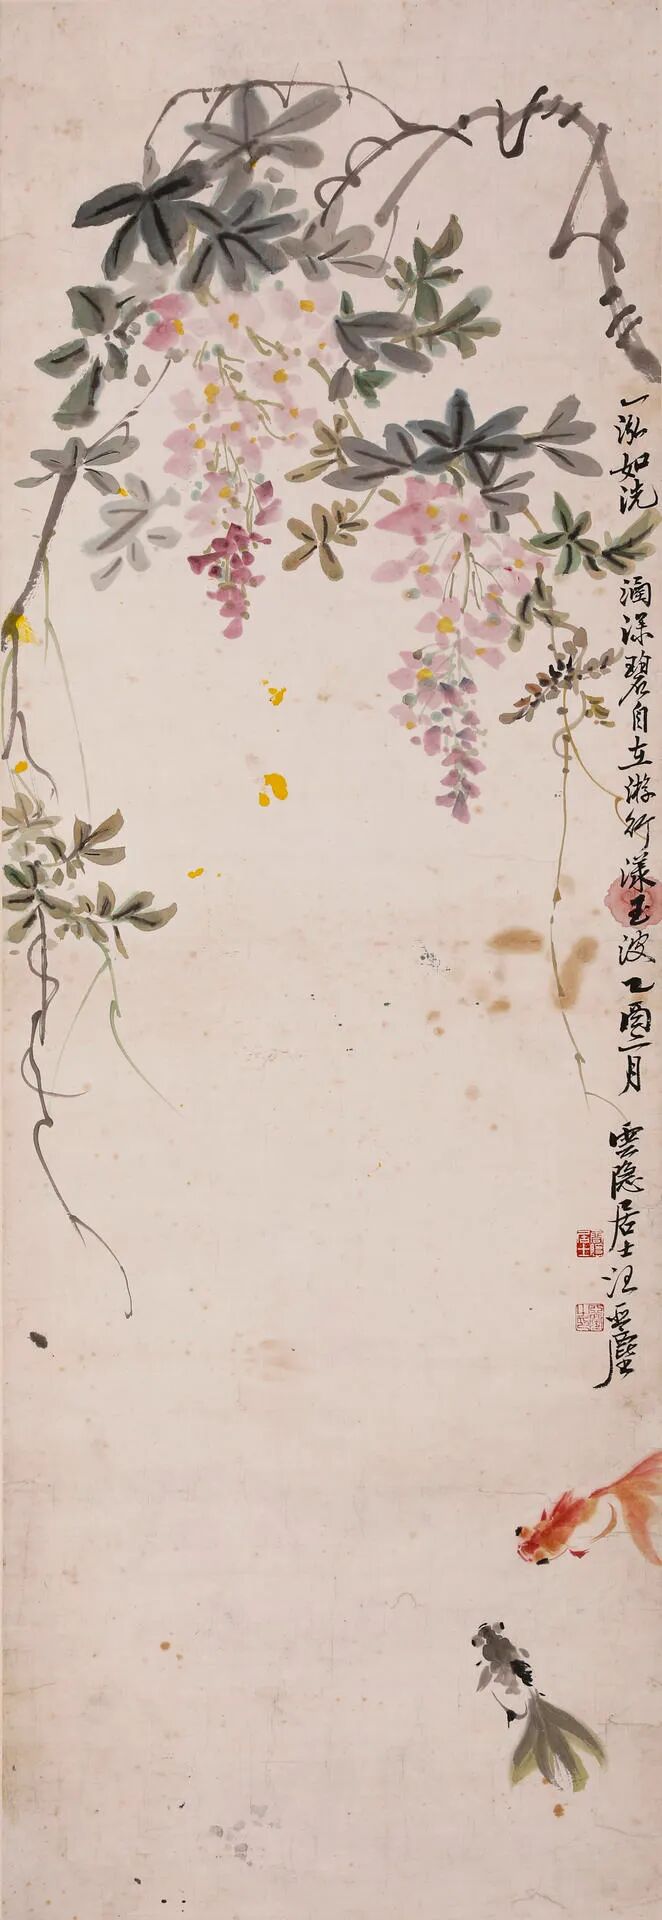 一泓如洗涵深碧自在游行漾玉波乙酉二月
雲隱居士汪亞塵